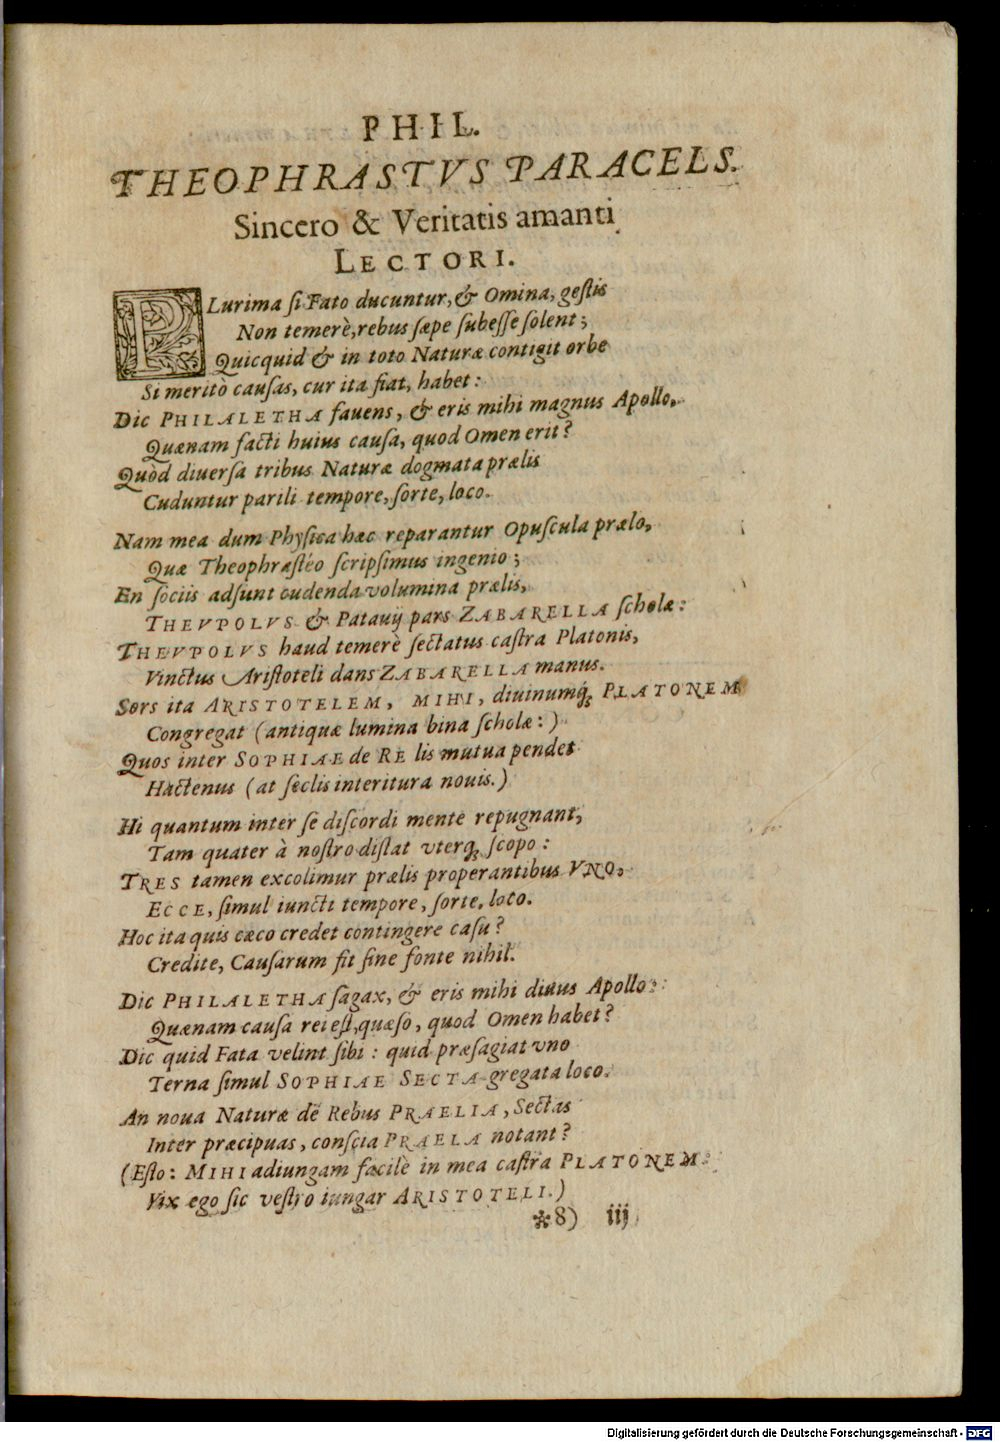 PHIL.
THEOPHRASTVS PARACELS.
Sincero & Veritatis amanti
LECTORI.
PLurima si Fato ducuntur, & Omina, gestis
Non temerè, rebus sæpe subesse solent;
Quicquid & in toto Naturæ contigit orbe
Si meritò causas, cur ita fiat, habet:
Dic PHILALETHA fauens, & eris mihi magnus Apollo,
Quænam facti huius causa, quod Omen erit?
Quòd diuersa tribus Naturæ dogmata prælis
Cuduntur parili tempore, sorte, loco.
Nam mea dum Physica hæc reparantur Opuscula prælo,
Quæ Theophrastéo scripsimus ingenio;
En sociis adsunt cudenda volumina prælis,
THEVPOLVS & Patauij pars ZABARELLA scholæ:
THEVPOLVS haud temerè sectatus castra Platonis,
Vinctus Aristoteli dans ZABARELLA manus.
Sors ita ARISTOTELEM, MIHI, diuinumq́; PLATONEM
Congregat (antiquæ lumina bina scholæ:)
Quos inter SOPHIAE de RE lis mutua pendet
Hactenus (at seclis interitura nouis.)
Hi quantum inter se discordi mente repugnant,
Tam quater à nostro distat vterq; scopo:
TRES tamen excolimur prælis properantibus VNO,
ECCE, simul iuncti tempore, sorte, loco.
Hoc ita quis cæco credet contingere casu?
Credite, Causarum fit sine fonte nihil.
Dic PHILALETHA sagax, & eris mihi diuus Apollo:
Quænam causa rei est, quæso, quod Omen habet?
Dic quid Fata velint sibi: quid præsagiat vno
Terna simul SOPHIAE SECTA gregata loco.
An noua Naturæ de Rebus PRAELIA, Sectas
Inter præcipuas, conscia PRAELA notant?
(Esto: MIHI adiungam facilè in mea castra PLATONEM:
Vix ego sic vestro iungar ARISTOTELI.)
*8) iij
Digitalisierung gefördert durch die Deutsche Forschungsgemeinschaft - DFG